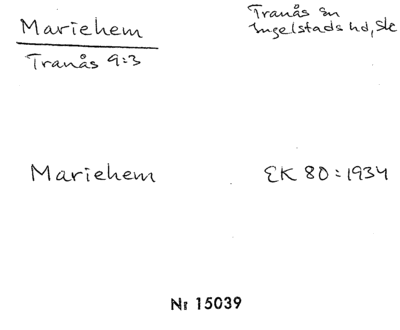 Mariehem
Tranås 9:3
Tranås sn
Ingelstads hd, Sk
Mariehem
EK 80:1934
Nr 15039